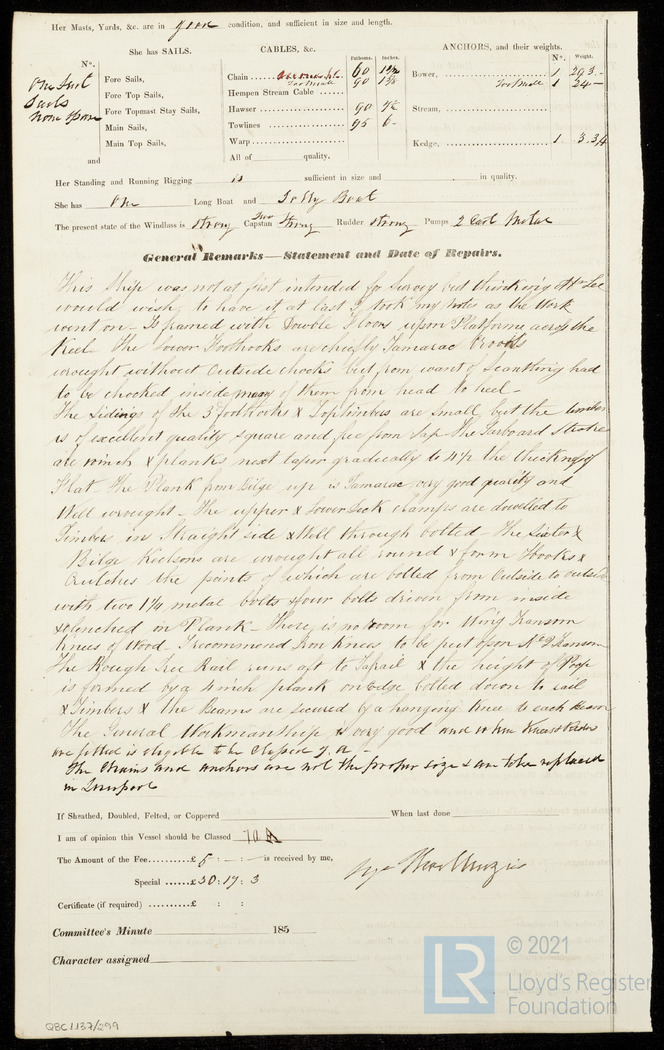 Her Masts, Yards, &c. are in good condition, and sufficient in size and length.
She has SAILS.
CABLES, &c.
ANCHORS, and their weights.
N°.
Fathoms.
Inches.
N°.
Weight.
One Suit
Sails
Fore Sails,
Fore Top Sails,
Fore Topmast Stay Sails,
Main Sails,
Main Top Sails,
and
Chain
60
Too small
90
Hempen Stream Cable
Hawser
90
Towlines
95 6-
Warp
All of quality.
Bower,
1
Too small 1 24-
Stream,
Kedge,
1 3.3/4
Her Standing and Running Rigging is sufficient in size and in quality.
She has One Long Boat and Jolly Boat
The present state of the Windlass is Strong Capstan Two Strong Rudder strong Pumps 2 Cast Metal
General Remarks—Statement and Date of Repairs.
This Ship was not at first intended for Survey but thinking Mr Lee
would wish to have it at last I took my notes as the Work
went on - Is framed with Double Floors upon Platforms across the
Keel The lower Foothooks are chiefly Tamarac Crooks
wrought without Outside chocks but from want of Scantling had
to be chocked inside many of them from head to heel -
The Sidings of the 3 foothooks & Toptimbers are small, but the timber
is of excellent quality square and free from Sap The Garboard Strakes
are inch & planks next taper gradually to 4½ the thickness of
Flat The Plank from Bilge up is Tamarac very good quality and
Well wrought - The upper & Lower Deck clamps are dowelled to
Timbers in Straight side & Well through bolted - The Sister &
Bilge Keelsons are wrought all round & form Hooks &
Crutches the points of which are bolted from Outside to outside
with two 1¼ metal bolts & four bolts driven from inside
& clenched on Plank - There is no room for Wing Transom
Knees of Wood I recommend Iron Knees to be put upon No 2 Transom
The Rough Tree Rail runs aft to Tafrail & the height of Poop
is formed by a 4 inch plank on edge bolted down to rail
& Timbers & the Beams are secured by a hanging Knee to each beam
The General Workmanship is very good and when Knees & Riders
are fitted is eligible to be Classed 7. A -
The Chains and anchors are not the proper size & are to be replaced
in Liverpool
If Sheathed, Doubled, Felted, or Coppered When last done
I am of opinion this Vessel should be Classed
The Amount of the Fee..........£ 5 : - : - is received by me,
Special ......£30 : 17 : 3
Certificate (if required) ..........£ : :
Committee's Minute 185
Character assigned
LR
© 2021
Lloyd's Register
Foundation
QBC1137/299